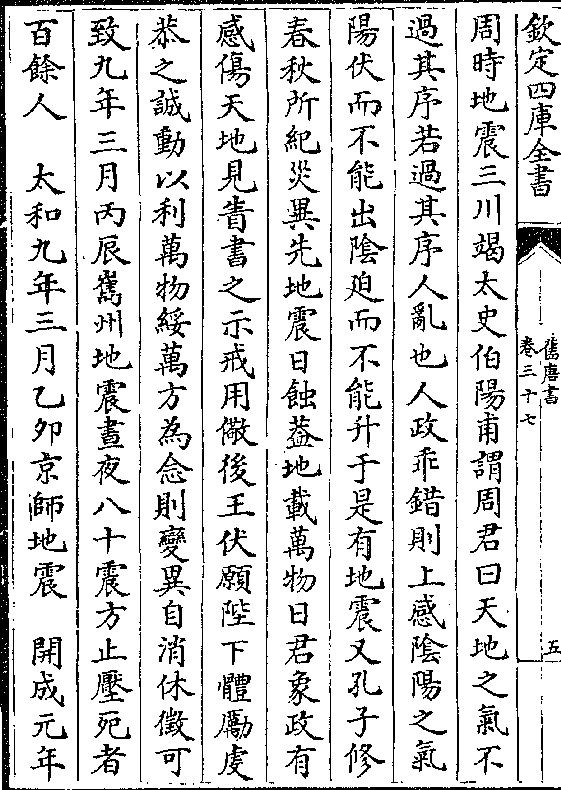 欽定四庫全書
舊唐書
卷三十七
五
周時地震三川竭太史伯陽甫謂周君曰天地之氣不
過其序若過其序人亂也人政乖錯則上感陰陽之氣
陽伏而不能出陰迫而不能升于是有地震又孔子修
春秋所紀災異先地震日蝕葢地載萬物日君象政有
感傷天地見眚書之示戒用儆後王伏願陛下體勵虔
恭之誠動以利萬物綏萬方為念則變異自消休徵可
致九年三月丙辰嶲州地震晝夜八十震方止壓死者
百餘人　太和九年三月乙卯京師地震　開成元年